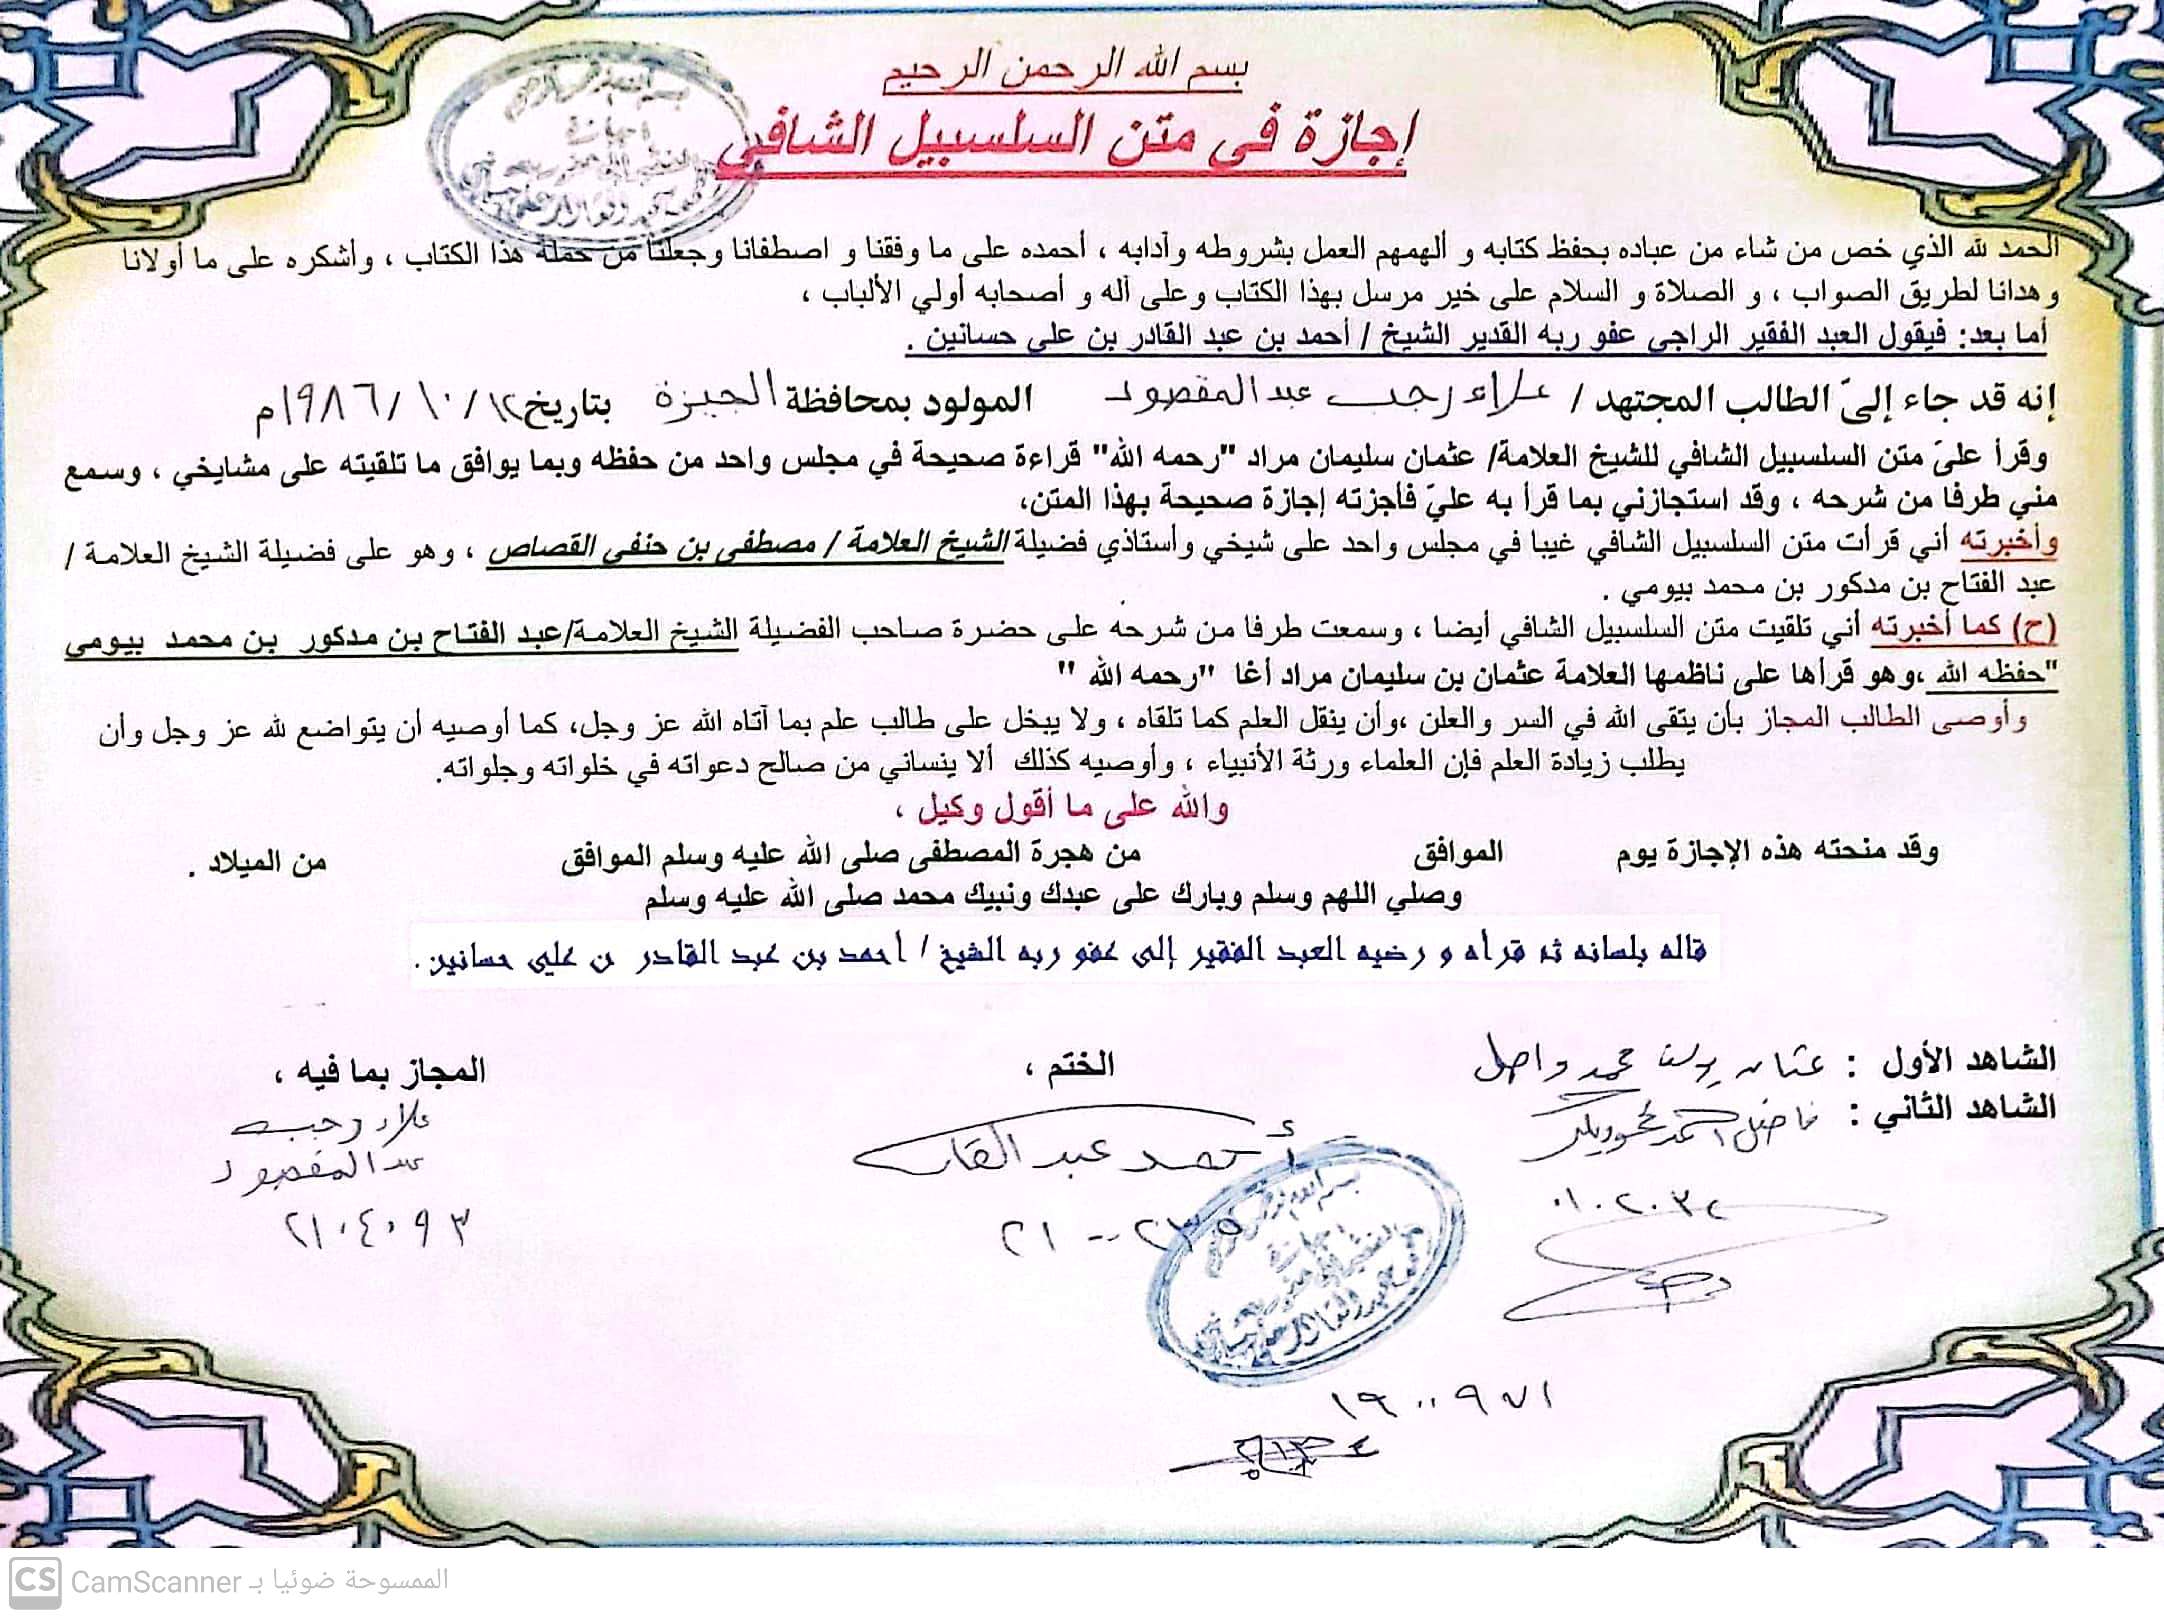 بسم الله الرحمن الرحيم
إجازة في متن السلسبيل الشافي
الحمد لله الذي خص من شاء من عباده بحفظ كتابه و ألهمهم العمل بشروطه وآدابه ، أحمده على ما وفقنا و اصطفانا وجعلنا من حملة هذا الكتاب ، وأشكره على ما أولانا
وهدانا لطريق الصواب ، و الصلاة و السلام على خير مرسل بهذا الكتاب وعلى آله و أصحابه أولي الألباب ،
أما بعد: فيقول العبد الفقير الراجي عفو ربه القدير الشيخ / أحمد بن عبد القادر بن علي حسانين .
إنه قد جاء إليّ الطالب المجتهد / علاء رجب عبد المقصود المولود بمحافظة الجيزة بتاريخ ١٢/ ١٠ /١٩٨٦م
وقرأ عليّ متن السلسبيل الشافي للشيخ العلامة/ عثمان سليمان مراد "رحمه الله" قراءة صحيحة في مجلس واحد من حفظه وبما يوافق ما تلقيته على مشايخي ، وسمع
مني طرفا من شرحه ، وقد استجازني بما قرأ به عليّ فأجزته إجازة صحيحة بهذا المتن،
وأخبرته أني قرأت متن السلسبيل الشافي غيبا في مجلس واحد على شيخي وأستاذي فضيلة الشيخ العلامة / مصطفى بن حنفي القصاص ، وهو على فضيلة الشيخ العلامة /
عبد الفتاح بن مدكور بن محمد بيومي .
(ح) كما أخبرته أني تلقيت متن السلسبيل الشافي أيضا ، وسمعت طرفا من شرحه على حضرة صاحب الفضيلة الشيخ العلامة/عبد الفتاح بن مدكور بن محمد بيومي
"حفظه الله ،وهو قرأها على ناظمها العلامة عثمان بن سليمان مراد أغا "رحمه الله "
وأوصى الطالب المجاز بأن يتقى الله في السر والعلن ،وأن ينقل العلم كما تلقاه ، ولا يبخل على طالب علم بما آتاه الله عز وجل، كما أوصيه أن يتواضع لله عز وجل وأن
يطلب زيادة العلم فإن العلماء ورثة الأنبياء ، وأوصيه كذلك ألا ينساني من صالح دعواته في خلواته وجلواته.
والله على ما أقول وكيل ،
وقد منحته هذه الإجازة يوم الموافق من هجرة المصطفى صلى الله عليه وسلم الموافق من الميلاد .
وصلي اللهم وسلم وبارك على عبدك ونبيك محمد صلى الله عليه وسلم
قاله بلسانه ثم قرأه و رضيه العبد الفقير إلى عفو ربه الشيخ / أحمد بن عبد القادر بن علي حسانين .
الشاهد الأول : محمد واصل
الشاهد الثاني : فاضل أحمد
الختم ،
أحمد عبد القادر
المجاز بما فيه ،
علاء رجب
عبد المقصود
٢١٠٤٠٩٣
CS CamScanner الممسوحة ضوئيا بـ